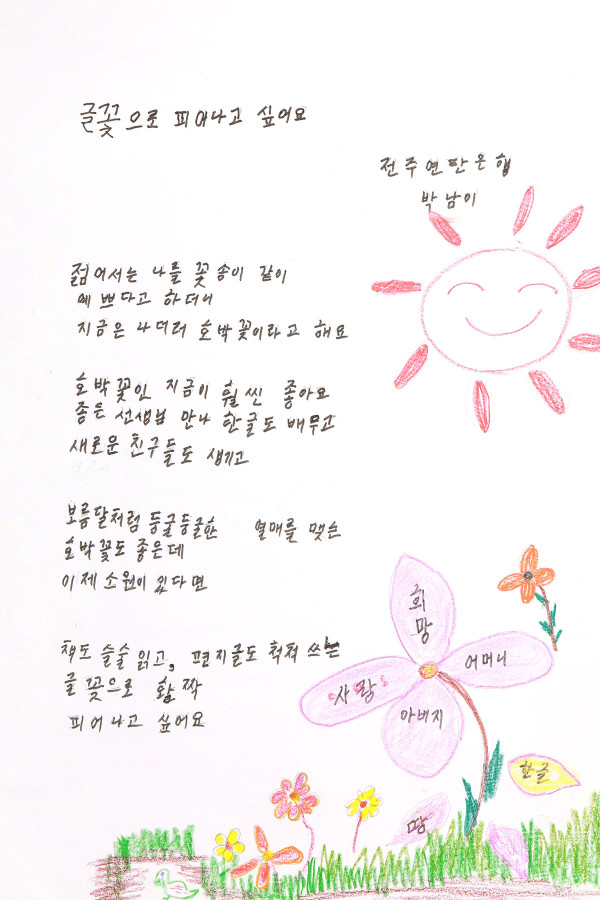 글꽃으로 피어나고 싶어요
전주연탄은행
박남이
젊어서는 나를 꽃송이 같이
예쁘다고 하더니
지금은 나더러 호박꽃이라고 해요
호박꽃인 지금이 훨씬 좋아요
좋은 선생님 만나 한글도 배우고
새로운 친구들도 생기고
보름달처럼 둥글둥글한 열매를 맺는
호박꽃도 좋은데
이제 소원이 있다면
책도 술술 읽고, 편지글도 척척 쓰는
글꽃으로 활짝
피어나고 싶어요
희망
어머니
사랑
아버지
한글
땅